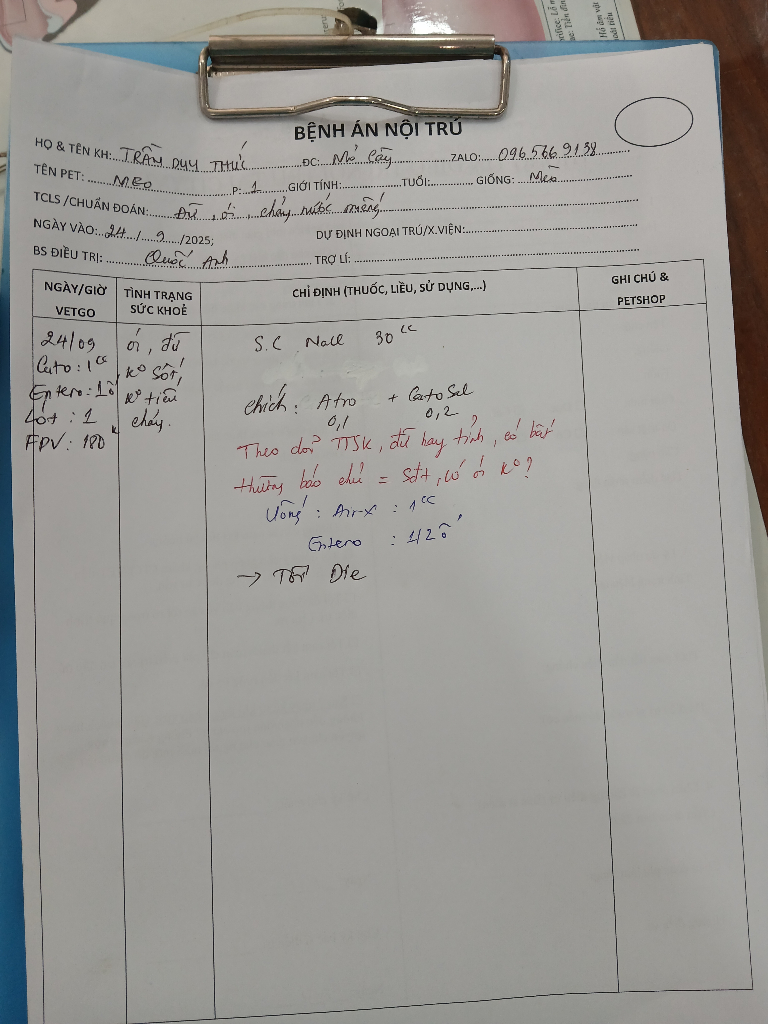 BỆNH ÁN NỘI TRÚ
HỌ & TÊN KH: TRẦM DUY THỨC ĐC: Mỏ Cày ZALO: 0965669138
TÊN PET: Mèo P: 1 GIỚI TÍNH: TUỔI: GIỐNG: Mèo
TCLS /CHUẨN ĐOÁN: Đừ, ói, chảy nước miếng
NGÀY VÀO: 24 / 9 /2025; DỰ ĐỊNH NGOẠI TRÚ/X.VIỆN:
BS ĐIỀU TRỊ: Quốc Anh TRỢ LÍ:
NGÀY/GIỜ VETGO
TÌNH TRẠNG SỨC KHOẺ
CHỈ ĐỊNH (THUỐC, LIỀU, SỬ DỤNG,...)
GHI CHÚ & PETSHOP
24/09
Cato: 1cc
Entero: 1ố
Lót: 1
FPV: 180k
ói, đừ
K° Sốt,
K° tiêu
chảy.
S.C Nacl 30cc
chích: Atro + CatoSal
0,1 0,2
Theo dõi TTSK, đừ hay tỉnh, có bất
thường báo chủ = Sđt, có ói K°?
Uống: Air-X: 1cc
Entero: 1/2 ố
→ Tối Die